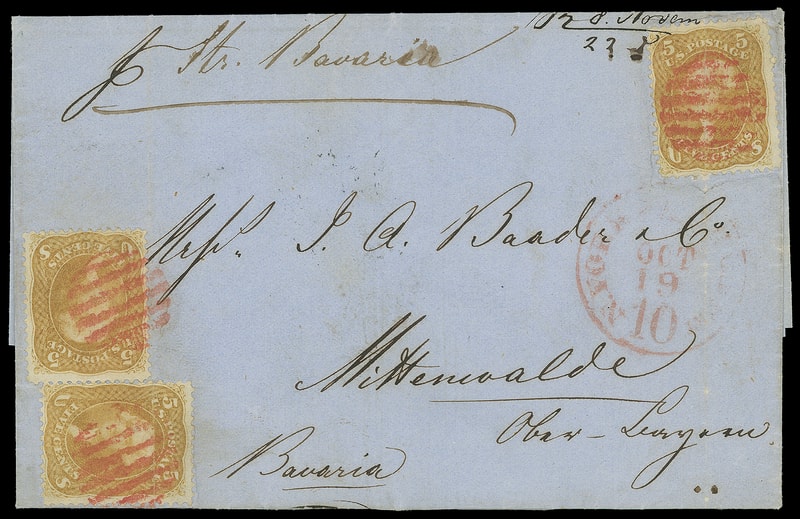 Str. Bavaria
8. Novem
22
5 5
U.S. POSTAGE
FIVE CENTS
U S
Messrs. J. A. Baader & Co.
YORK
OCT
19
10
Mittenwalde
Ober-Bayern
Bavaria
5 5
U.S. POSTAGE
FIVE CENTS
U S
5 5
U.S. POSTAGE
FIVE CENTS
U S